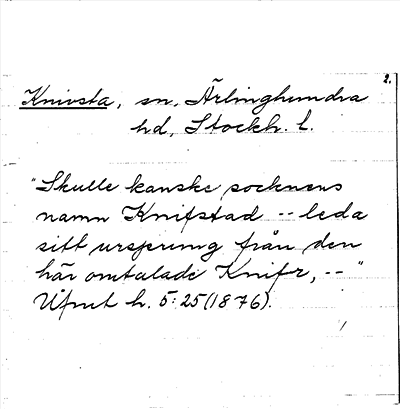 2.
Knivsta, sn, Ärlinghundra
hd, Stockh. l.
"Skulle kanske socknens
namn Knifstad -- leda
sitt ursprung från den
här omtalade Knifr, --"
UFmt h. 5:25 (1876).